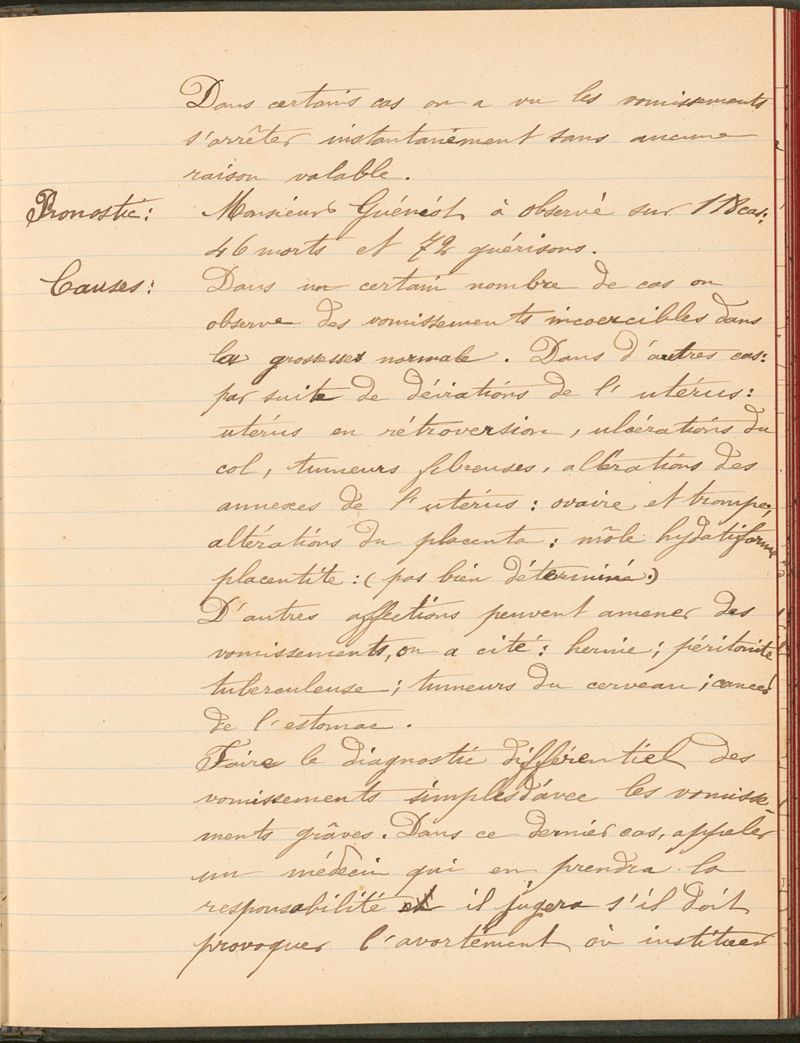 Dans certains cas on a vu les vomissements
s'arrêter instantanément sans aucune
raison valable.
Pronostic: Monsieur Guéniot à observé sur 118 cas:
46 morts et 72 guérisons.
Causes: Dans un certain nombre de cas on
observe des vomissements incoercibles dans
la grossesse normale. Dans d'autres cas:
par suite de déviations de l'utérus:
utérus en rétroversion, ulcérations du
col, tumeurs fibreuses, altérations des
annexes de l'utérus: ovaire et trompe,
altérations du placenta: môle hydatiforme
placentite: (pas bien déterminé.)
D'autres affections peuvent amener des
vomissements, on a cité: hernie; péritonite
tuberculeuse; tumeurs du cerveau; cancer
de l'estomac.
Faire le diagnostic différentiel des
vomissements simples d'avec les vomisse-
ments grâves. Dans ce dernier cas, appeler
un médecin qui en prendra la
responsabilité et il jugera s'il doit
provoquer l'avortément où instituer